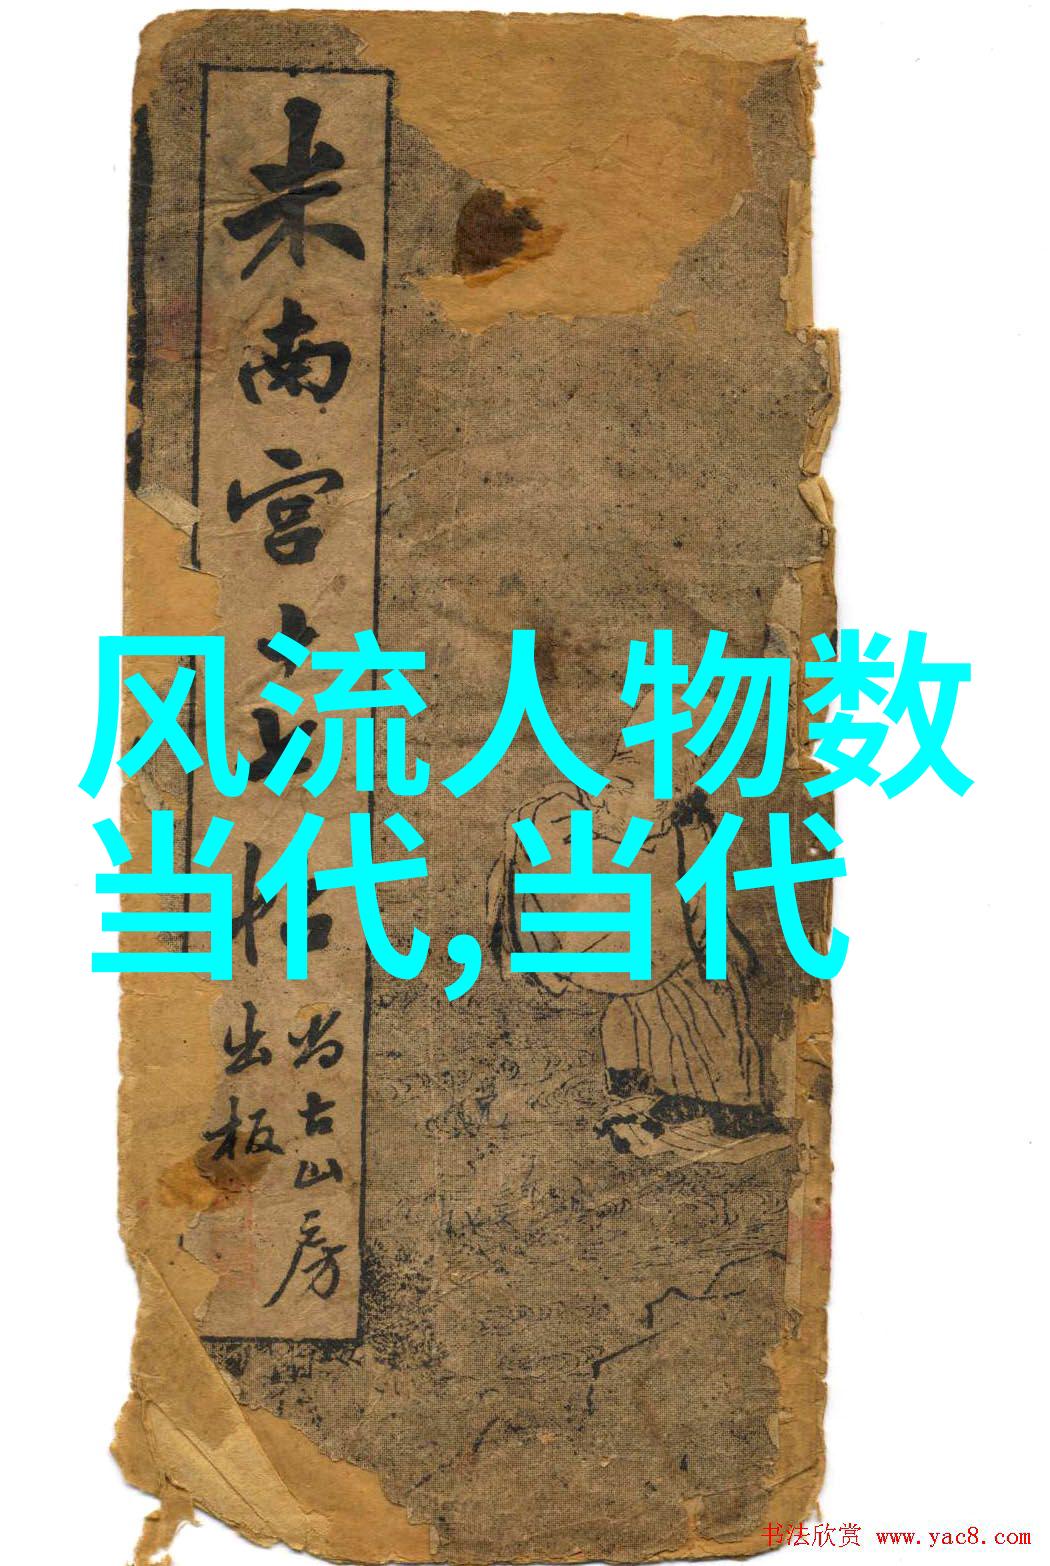 米南宫
尚古山房
出板
风流人物数
当代,当代
书法欣赏 www.yac8.com